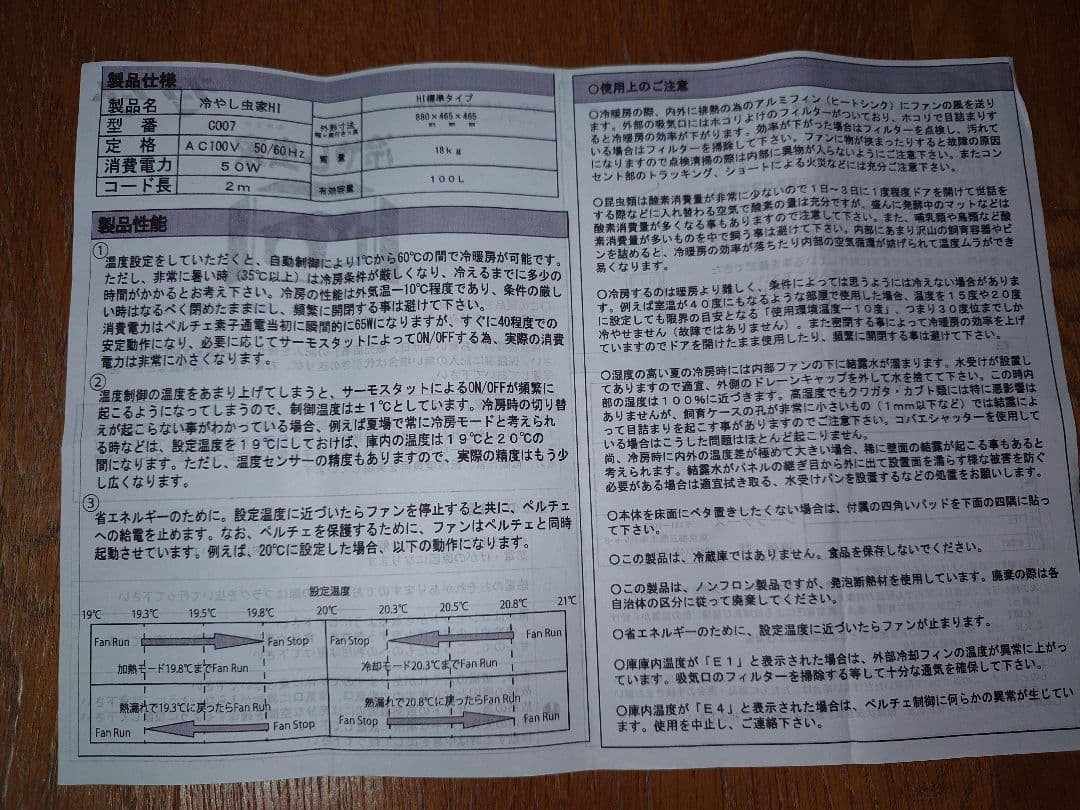 製品仕様
製品名 冷やし虫家HI
型番 C007
定格 AC100V 50/60Hz
消費電力 50W
コード長 2m
外形寸法 HI標準タイプ
幅×奥行き×高 880×465×465
質量 18kg
有効容量 100L
製品性能
①
温度設定をしていただくと、自動制御により1℃から60℃の間で冷暖房が可能です。
ただし、非常に暑い時(35℃以上)は冷房条件が厳しくなり、冷えるまでに多少の
時間がかかるとお考え下さい。冷房の性能は外気温ー10℃程度であり、条件の厳し
い時はなるべく閉めたままにし、頻繁に開閉する事は避けて下さい。
消費電力はペルチェ素子通電当初に瞬間的に65Wになりますが、すぐに40程度での
安定動作になり、必要に応じてサーモスタットによってON/OFFする為、実際の消費
電力は非常に小さくなります。
②
温度制御の温度をあまり上げてしまうと、サーモスタットによるON/OFFが頻繁に
起こるようになってしまうので、制御温度は±1℃としています。冷房時の切り替
えが起こらない事がわかっている場合、例えば夏場で常に冷房モードと考えられ
る時などは、設定温度を19℃にしておけば、庫内の温度は19℃と20℃の
間になります。ただし、温度センサーの精度もありますので、実際の精度はもう少
し広くなります。
③
省エネルギーのために。設定温度に近づいたらファンを停止すると共に、ペルチェ
への給電を止めます。なお、ペルチェを保護するために、ファンはペルチェと同時
起動させています。例えば、20℃に設定した場合、以下の動作になります。
設定温度
19℃ 19.3℃ 19.5℃ 19.8℃ 20℃ 20.3℃ 20.5℃ 20.8℃ 21℃
Fan Run Fan Stop Fan Stop Fan Run
加熱モード19.8℃までFan Run 冷却モード20.3℃までFan Run
熱漏れで19.3℃に戻ったらFan Run 熱漏れで20.8℃に戻ったらFan Run
Fan Run Fan Stop Fan Stop Fan Run
○使用上のご注意
○冷暖房の際、内外に排熱の為のアルミフィン(ヒートシンク)にファンの風を送り
ます。外部の吸気口にはホコリよけのフィルターがついており、ホコリで目詰まりす
ると冷暖房の効率が下がります。効率が下がった場合はフィルターを点検し、汚れて
いる場合はフィルターを掃除して下さい。ファンに物が挟まったりすると故障の原因
になりますので点検清掃の際は内部に異物が入らないようにご注意下さい。またコン
セント部のトラッキング、ショートによる火災などには充分ご注意下さい。
○昆虫類は酸素消費量が非常に少ないので1日~3日に1度程度ドアを開けて世話を
する際などに入れ替わる空気で酸素の量は充分ですが、盛んに発酵中のマットなどは
酸素消費量が多くなる事もありますので注意して下さい。また、哺乳類や鳥類など酸
素消費量が多いものを中で飼う事は避けて下さい。内部にあまり沢山の飼育容器やビ
ンを詰めると、冷暖房の効率が落ちたり内部の空気循環が妨げられて温度ムラができ
易くなります。
○冷房するのは暖房より難しく、条件によっては思うようには冷えない場合がありま
す。例えば室温が40度にもなるような部屋で使用した場合、温度を15度や20度
に設定しても限界の目安となる「使用環境温度ー10度」、つまり30度位までしか
冷やせません(故障ではありません)。また密閉する事によって冷暖房の効率を上げ
ていますのでドアを開けたまま使用したり、頻繁に開閉する事は避けて下さい。
○湿度の高い夏の冷房時には内部ファンの下に結露水が溜まります。水受けが設置し
てありますので適宜、外側のドレーンキャップを外して水を捨てて下さい。この時内
部の湿度は100%に近づきます。高湿度でもクワガタ・カブト類には特に悪影響は
ありませんが、飼育ケースの孔が非常に小さいもの(1mm以下など)では結露によ
って目詰まりを起こす事がありますのでご注意下さい。コバエシャッターを使用して
いる場合はこうした問題はほとんど起こりません。
尚、冷房時に内外の温度差が極めて大きい場合、稀に壁面の結露が起こる事もあると
考えられます。結露水がパネルの継ぎ目から外に出て設置面を濡らす様な被害を防ぐ
必要がある場合は適宜拭き取る、水受けパンを設置するなどの処置をお願いします。
○本体を床面にベタ置きしたくない場合は、付属の四角いパッドを下面の四隅に貼っ
て下さい。
○この製品は、冷蔵庫ではありません。食品を保存しないでください。
○この製品は、ノンフロン製品ですが、発泡断熱材を使用しています。廃棄の際は各
自治体の区分に従って廃棄してください。
○省エネルギーのために、設定温度に近づいたらファンが止まります。
○庫庫内温度が「E1」と表示された場合は、外部冷却フィンの温度が異常に上がっ
ています。吸気口のフィルターを掃除する等して十分な通気を確保して下さい。
○庫内温度が「E4」と表示された場合は、ペルチェ制御に何らかの異常が生じてい
ます。使用を中止し、ご連絡下さい。